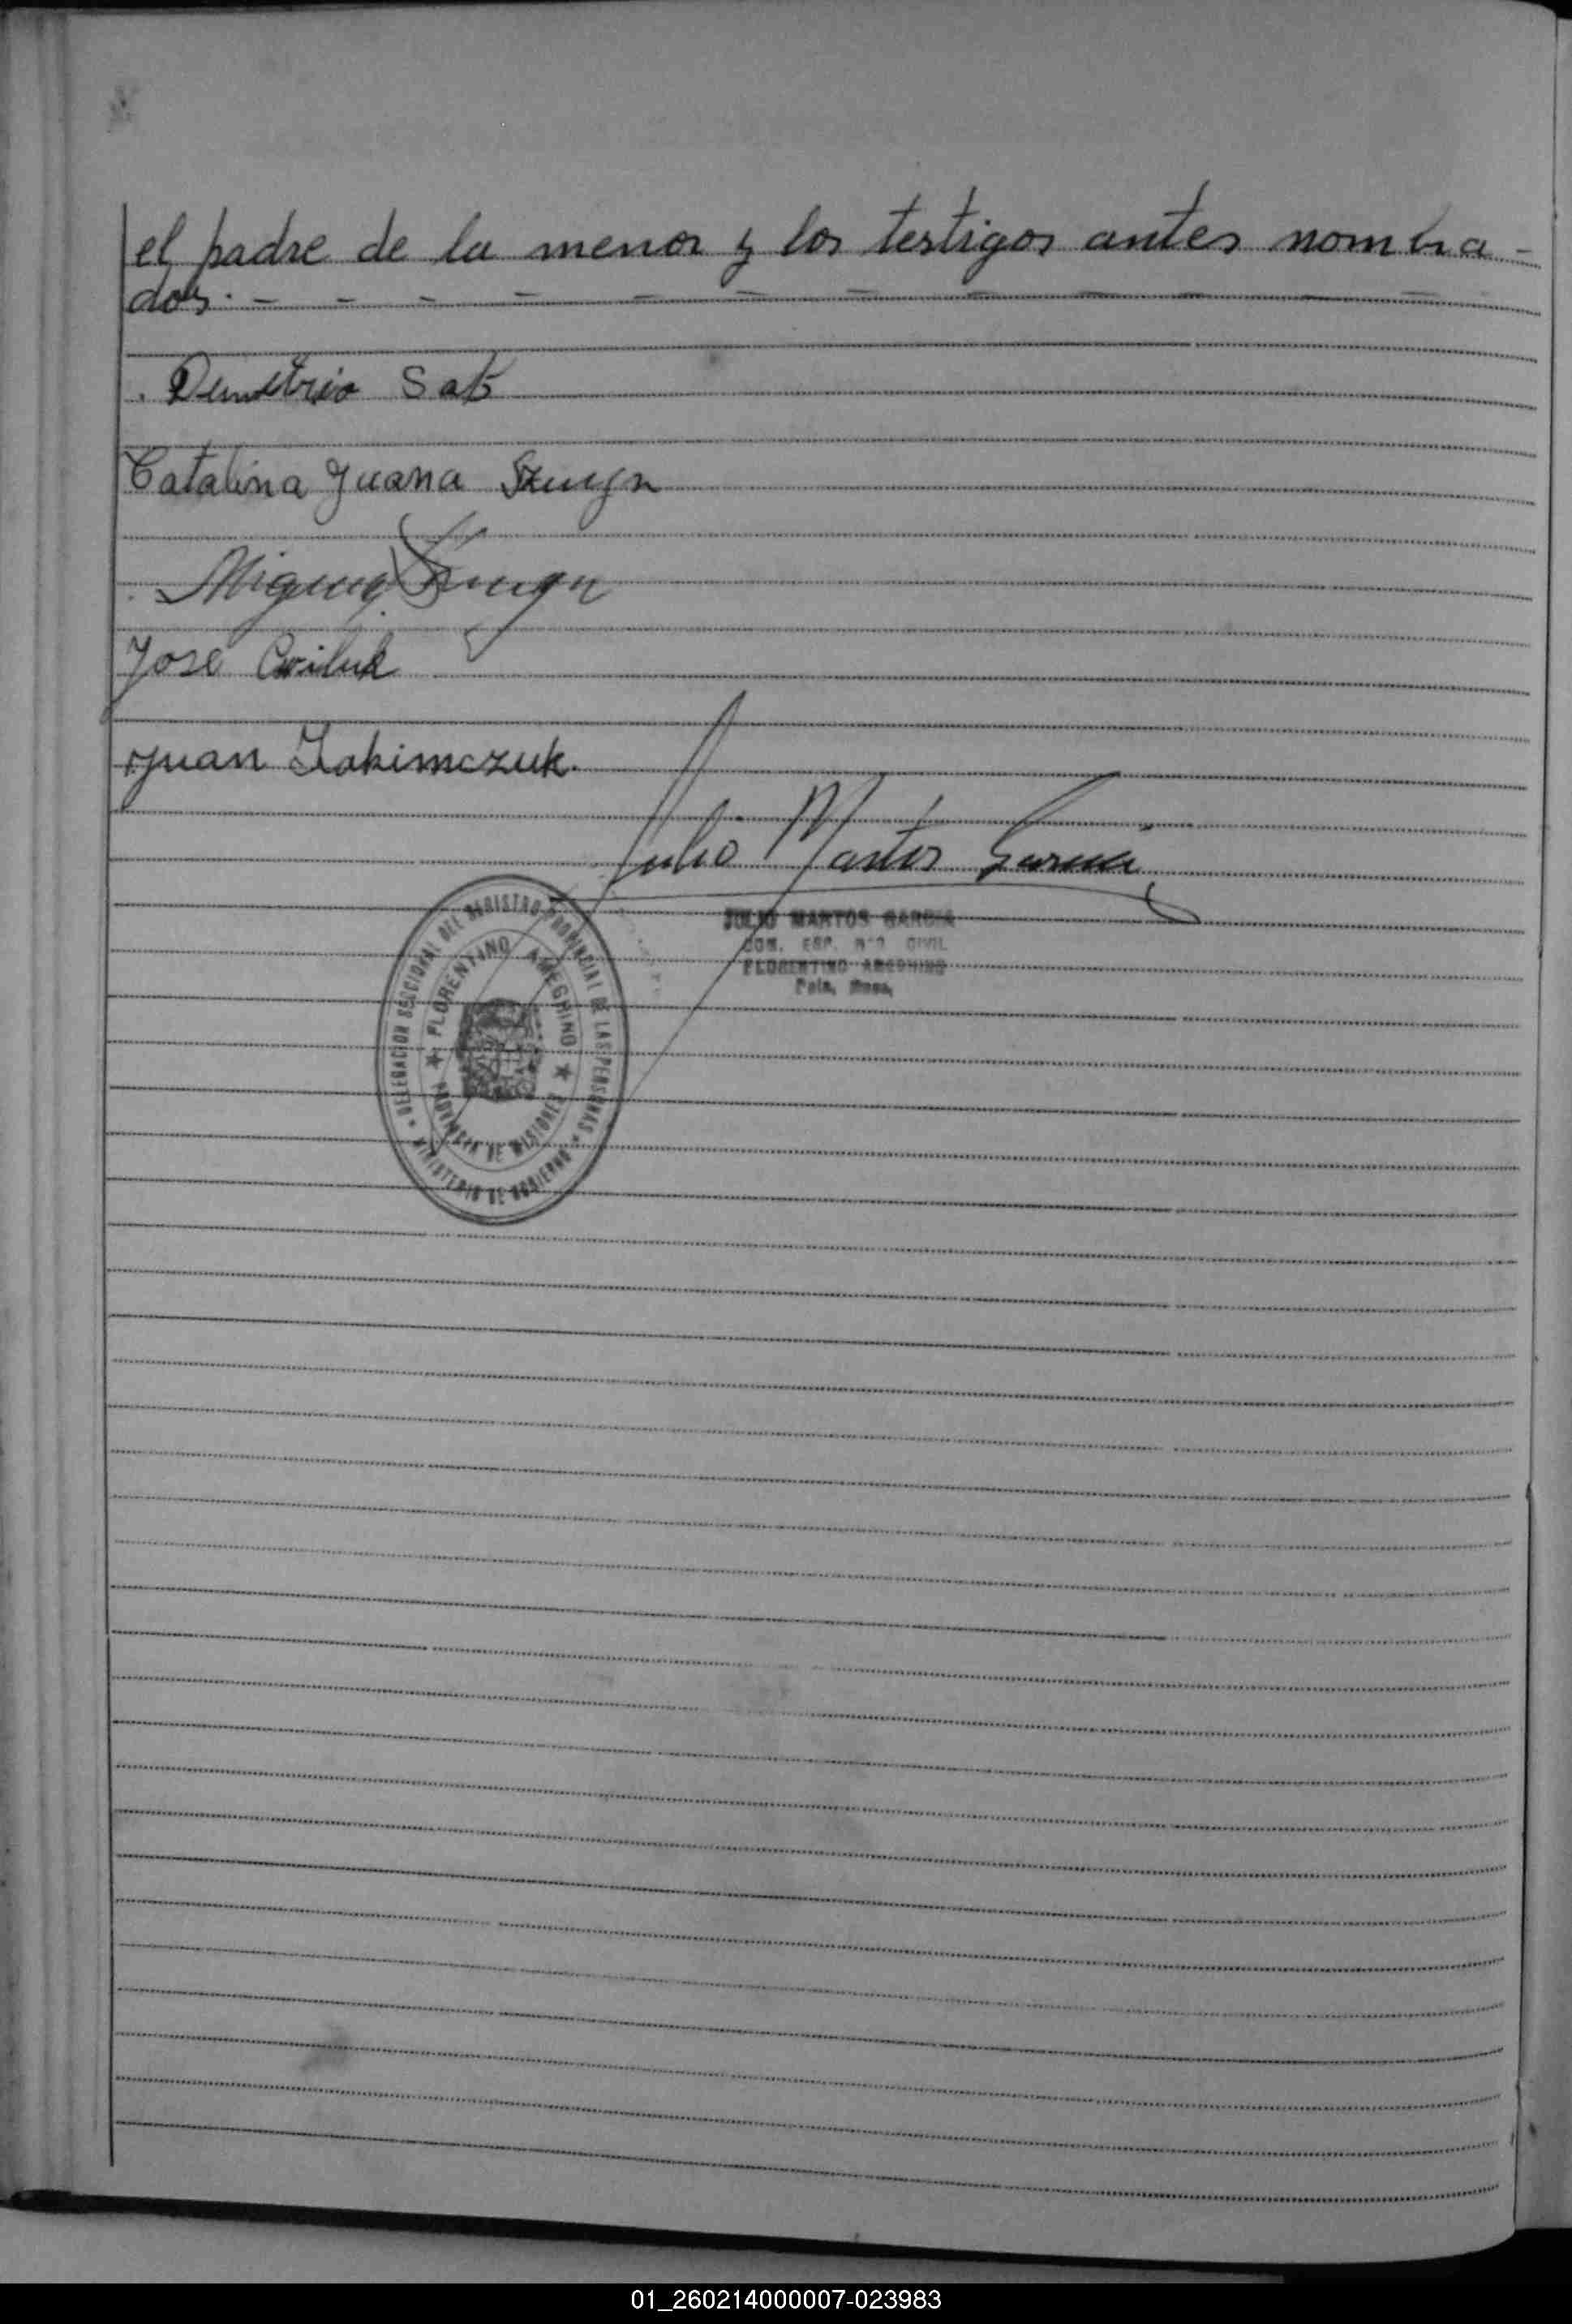 el padre de la menor y los testigos antes nombra-
dos. - - - - - - - - - - -
Demetrio Sab
Catalina Juana Szmyn
Miguel
Jose Cwiluk
Juan Iakimczuk.
Julio Martos Garcia
JULIO MARTOS GARCIA
CIVIL
FLORENTINO AMEGHINO
Pcia. Mnes.
DELEGACION SECCIONAL DEL REGISTRO PROVINCIAL DE LAS PERSONAS
FLORENTINO AMEGHINO
PROVINCIA DE MISIONES
MINISTERIO DE GOBIERNO
01_260214000007-023983